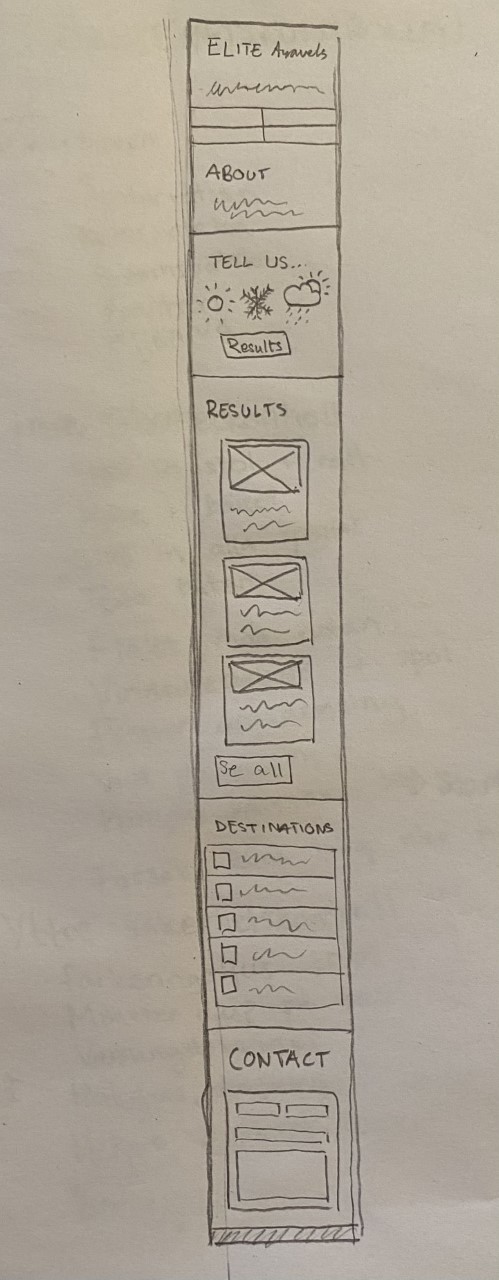 ELITE Aravels
ABOUT
TELL US...
Results
RESULTS
Se all
DESTINATIONS
CONTACT